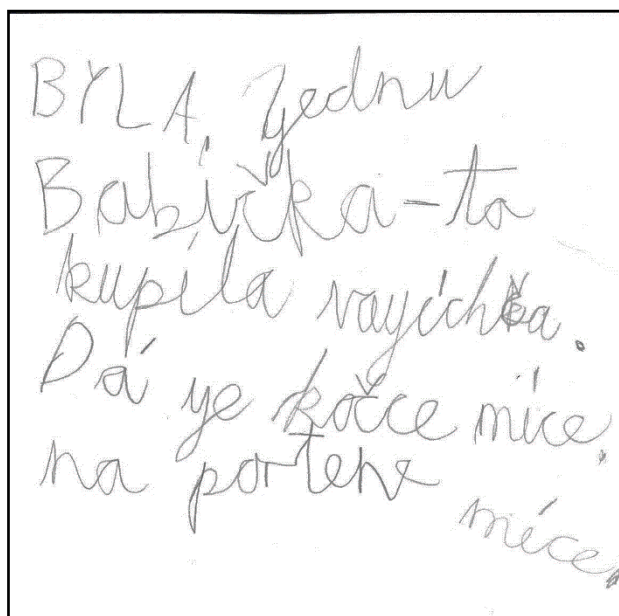 BYLA, yednu
Babička-ta
kupila vayíchka.
Dá ye kočce míce,
na porťene
míce,